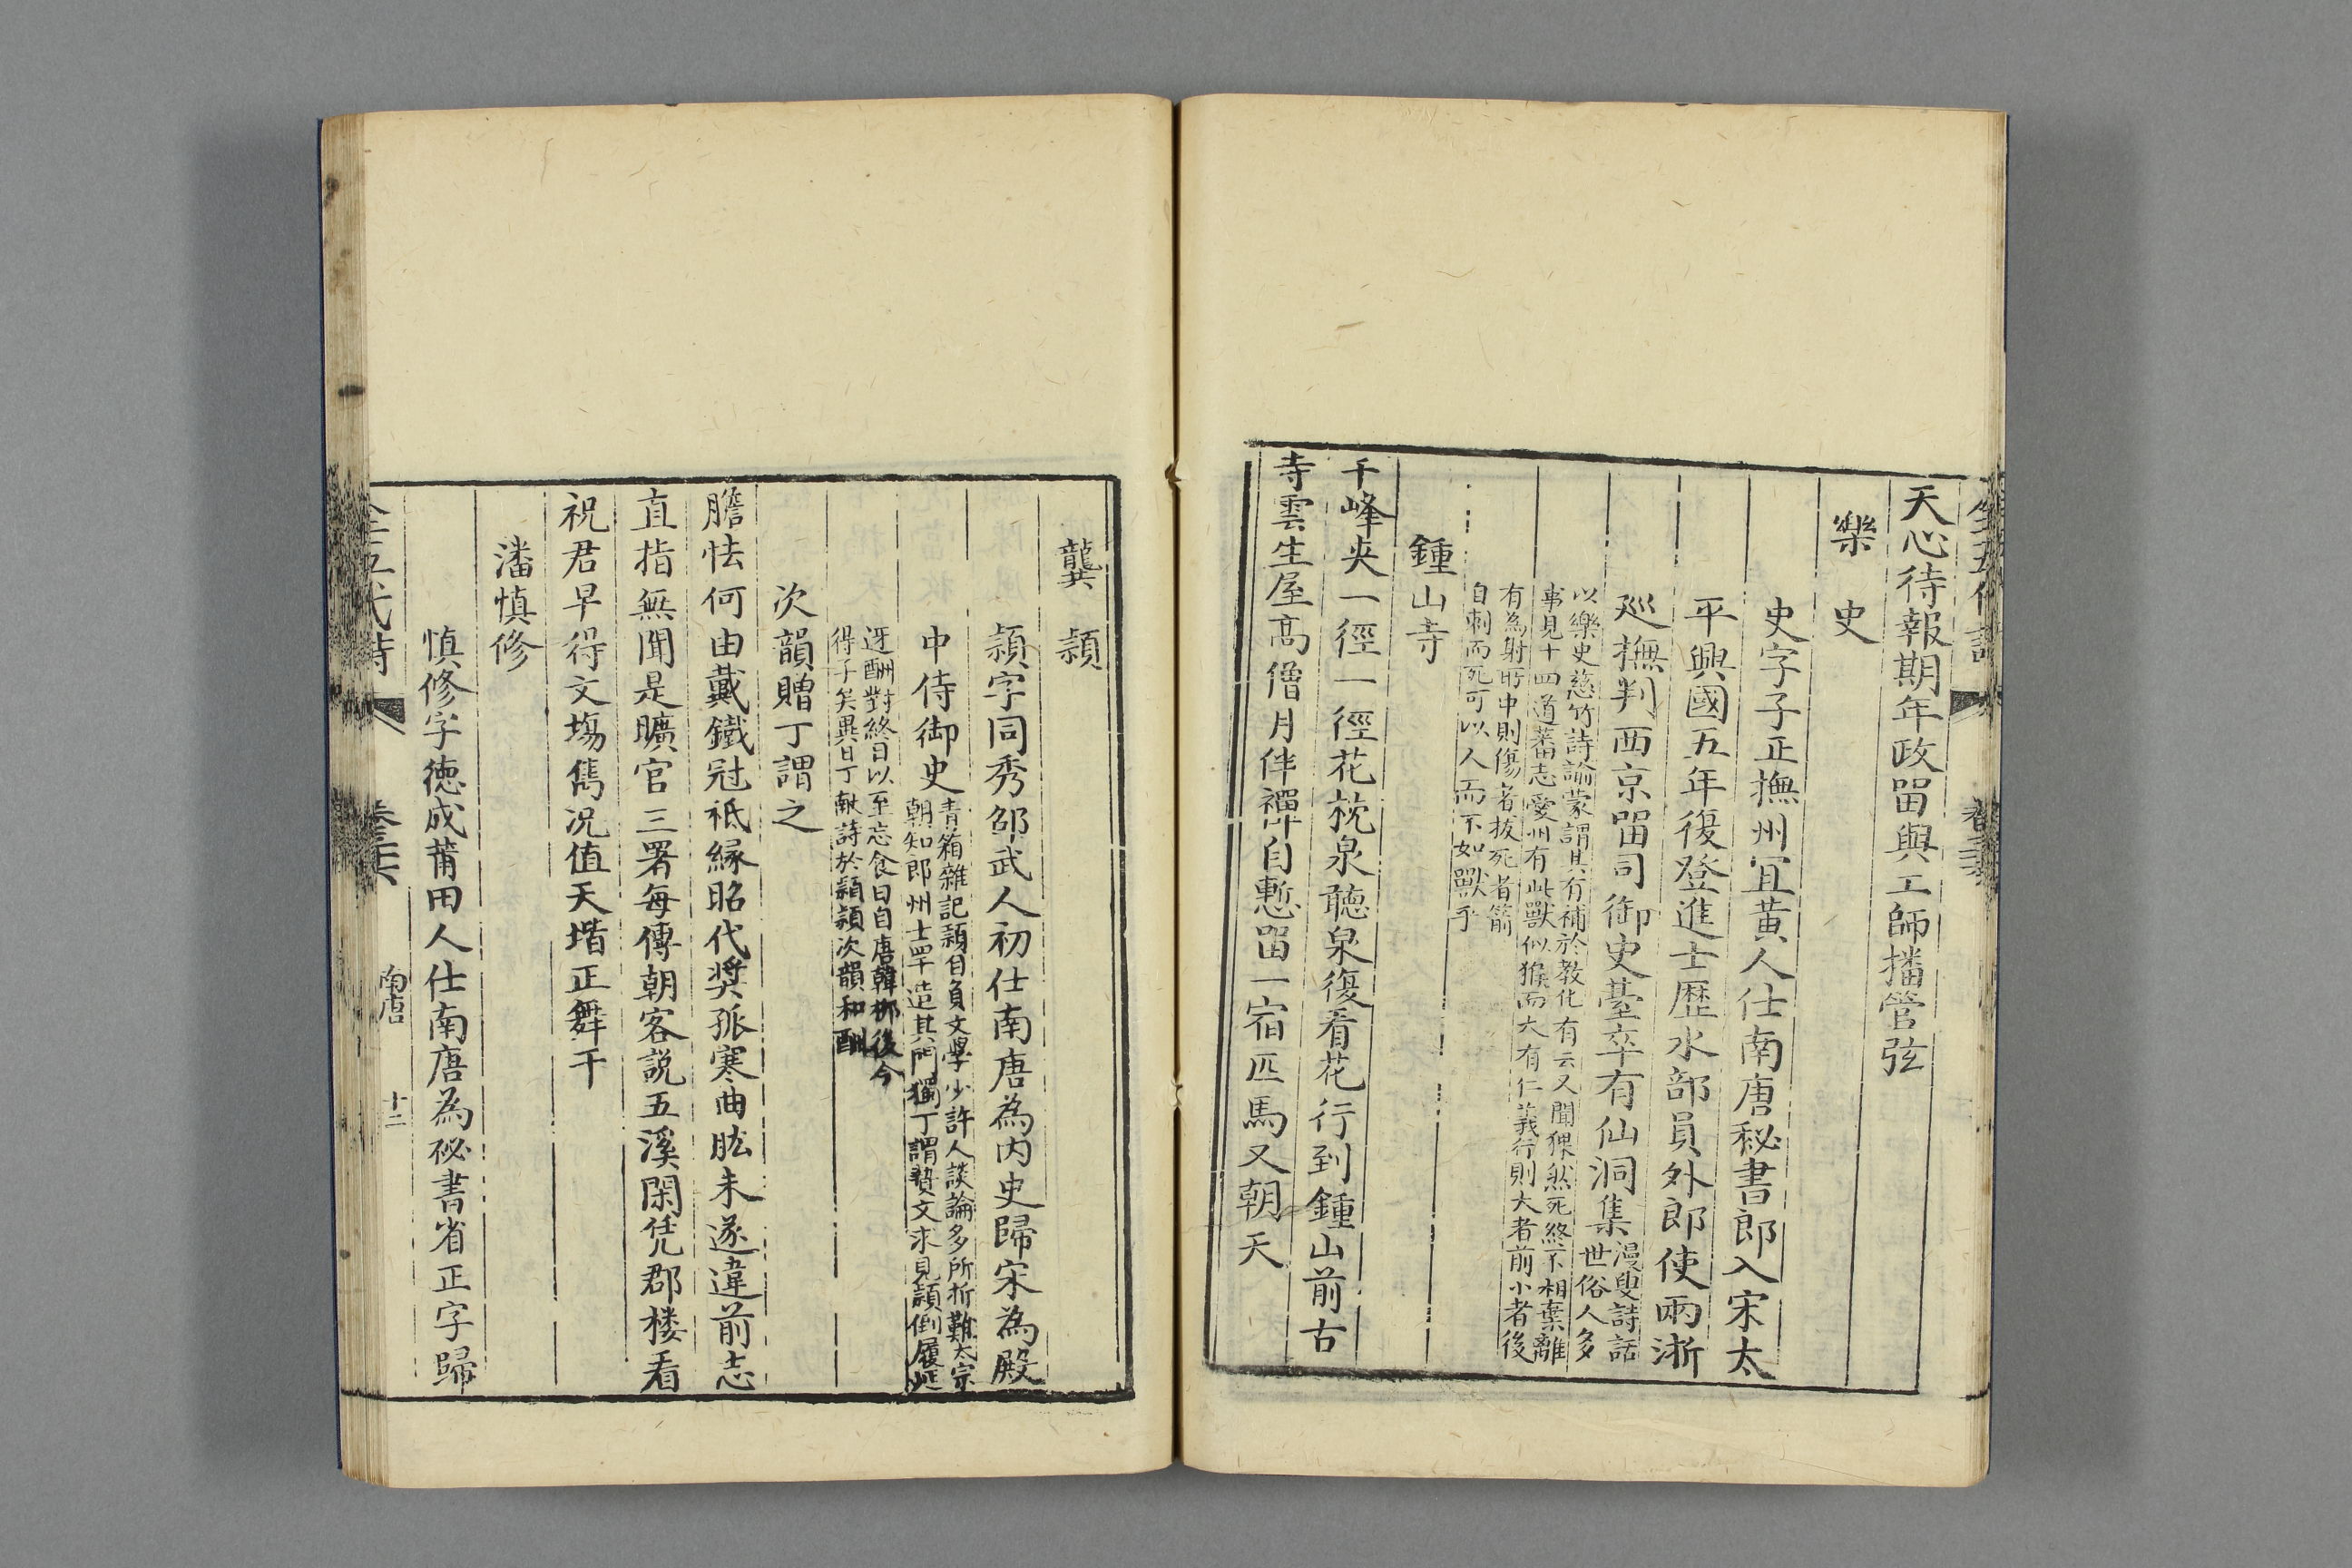 天心待報期年政畱與工師播管弦
樂史
史字子正撫州宜黃人仕南唐秘書郎入宋太
平興國五年復登進士歷水部員外郎使兩浙
巡撫判西京畱司御史臺卒有仙洞集
漫叟詩話
世俗人多
以樂史慈竹詩諭蒙謂其有補於教化有云又聞猓然死終不相棄離
事見十四道蕃志愛州有此獸似猴而大有仁義行則大者前小者後
有為射所中則傷者拔死者箭
自刺而死可以人而不如獸乎
鍾山寺
千峰夾一徑一徑花旎泉聽泉復看花行到鍾山前古
寺雲生屋高僧月伴禪自慙畱一宿匹馬又朝天
龔穎
穎字同秀邵武人初仕南唐為内史歸宋為殿
中侍御史
青箱雜記穎自負文學少許人談論多所折難太宗
朝知郎州士罕造其門獨丁謂贄文求見穎倒屨延
迓酬對終日以至忘食曰自唐韓柳後今
得子矣異日丁獻詩於穎穎次韻和酬
次韻贈丁謂之
膽怯何由戴鐵冠祗緣昭代奬孤寒曲肱未遂違前志
直指無聞是曠官三署每傳朝客説五溪閑凭郡楼看
祝君早得文塲雋况值天堦正舞干
潘慎修
慎修字徳成莆田人仕南唐為祕書省正字歸
全五代詩
南唐
十二